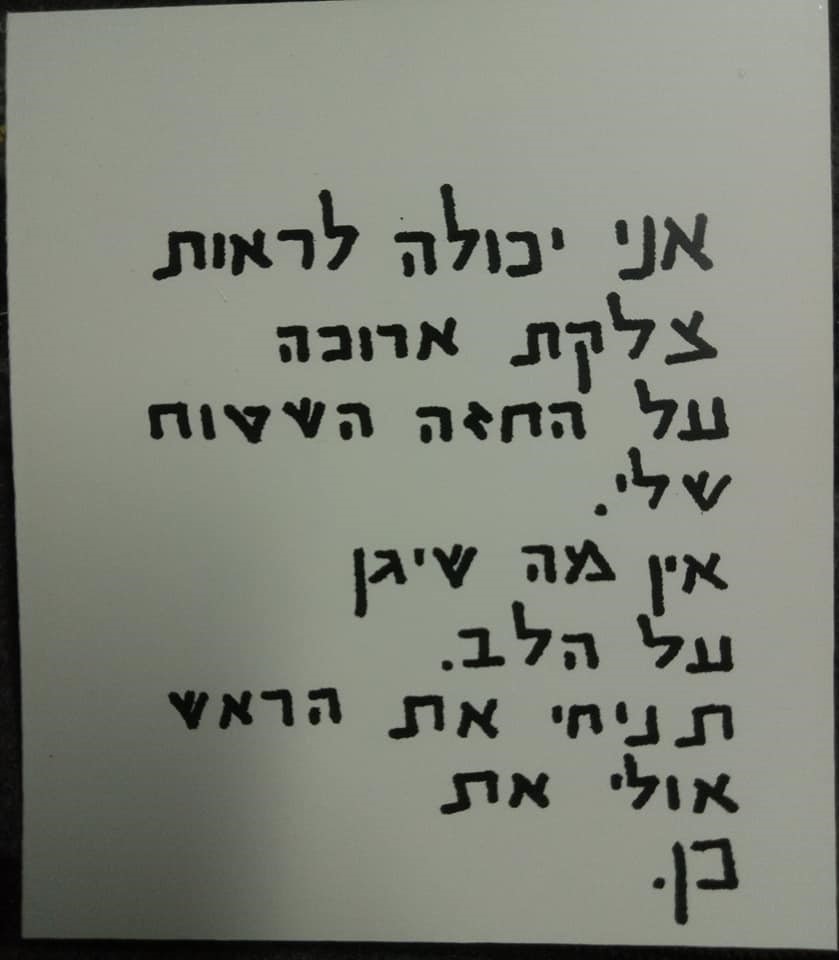 אני יכולה לראות
צלקת ארוכה
על החזה השטוח
שלי.
אין מה שיגן
על הלב.
תניחי את הראש
אולי את
כן.